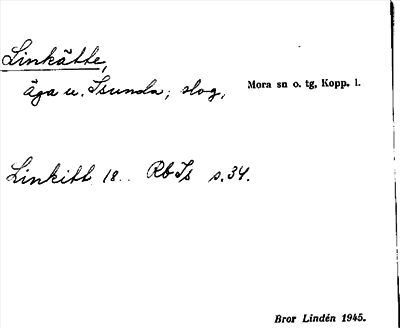 Linkätte,
äga u. Isunda; skog, Mora sn o. tg, Kopp. l.
Linkitt 18.. Rb Is s. 34.
Bror Lindén 1945.